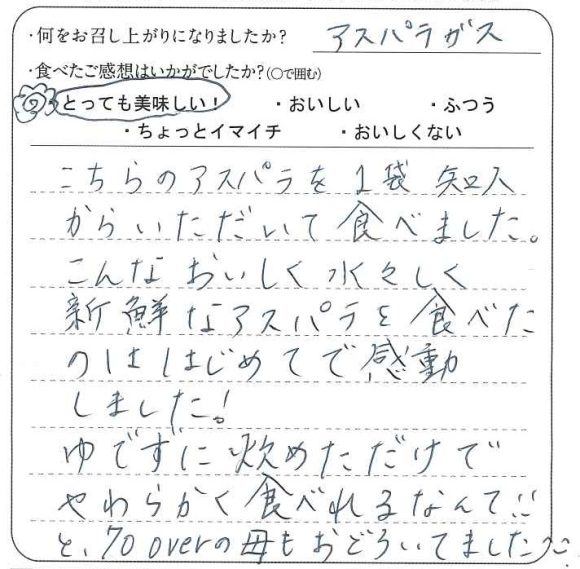 ・何をお召し上がりになりましたか? アスパラガス
・食べたご感想はいかがでしたか?(○で囲む)
とっても美味しい! ・おいしい ・ふつう
・ちょっとイマイチ ・おいしくない
こちらのアスパラを1袋 知人
からいただいて食べました。
こんなおいしく水々しく
新鮮なアスパラを食べた
のははじめてで感動
しました!
ゆでずに炊めただけで
やわらかく食べれるなんて!!
と、70 overの母もおどろいてました